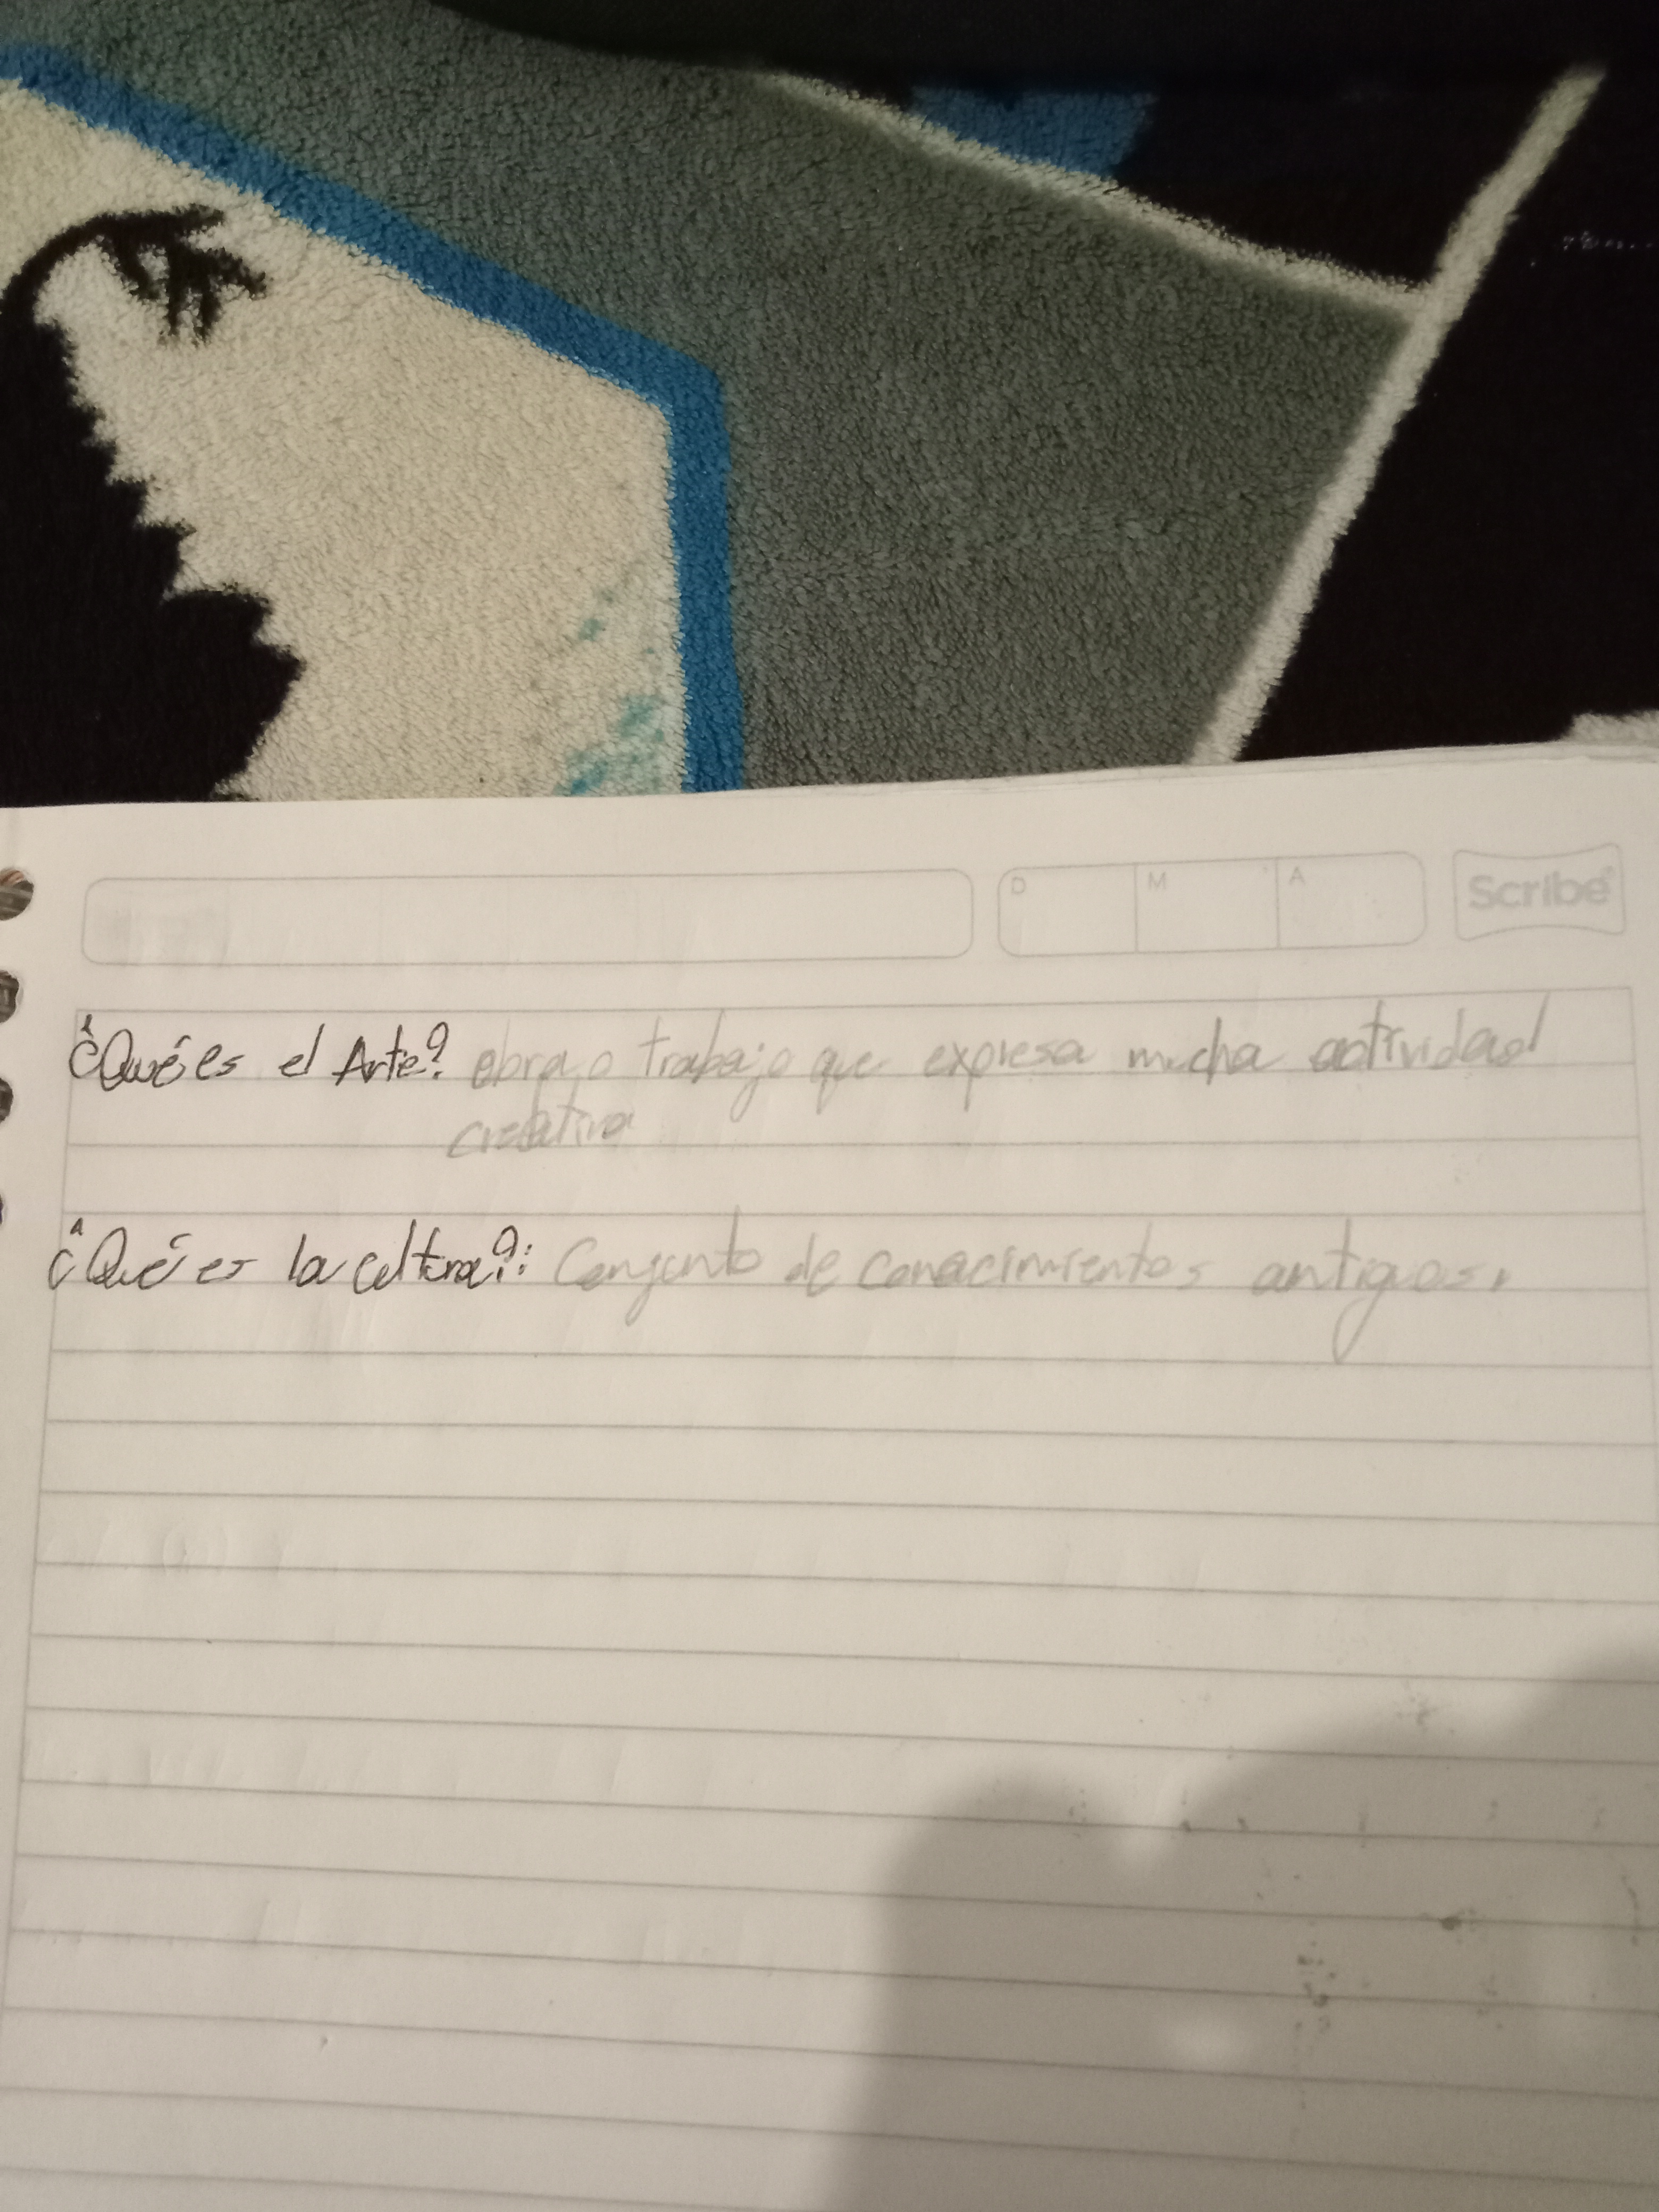 D M A Scribe
¿Qué es el Arte? obra o trabajo que expresa mucha actividad
creativa
¿Qué es la cultura?: Conjunto de conocimientos antiguos.